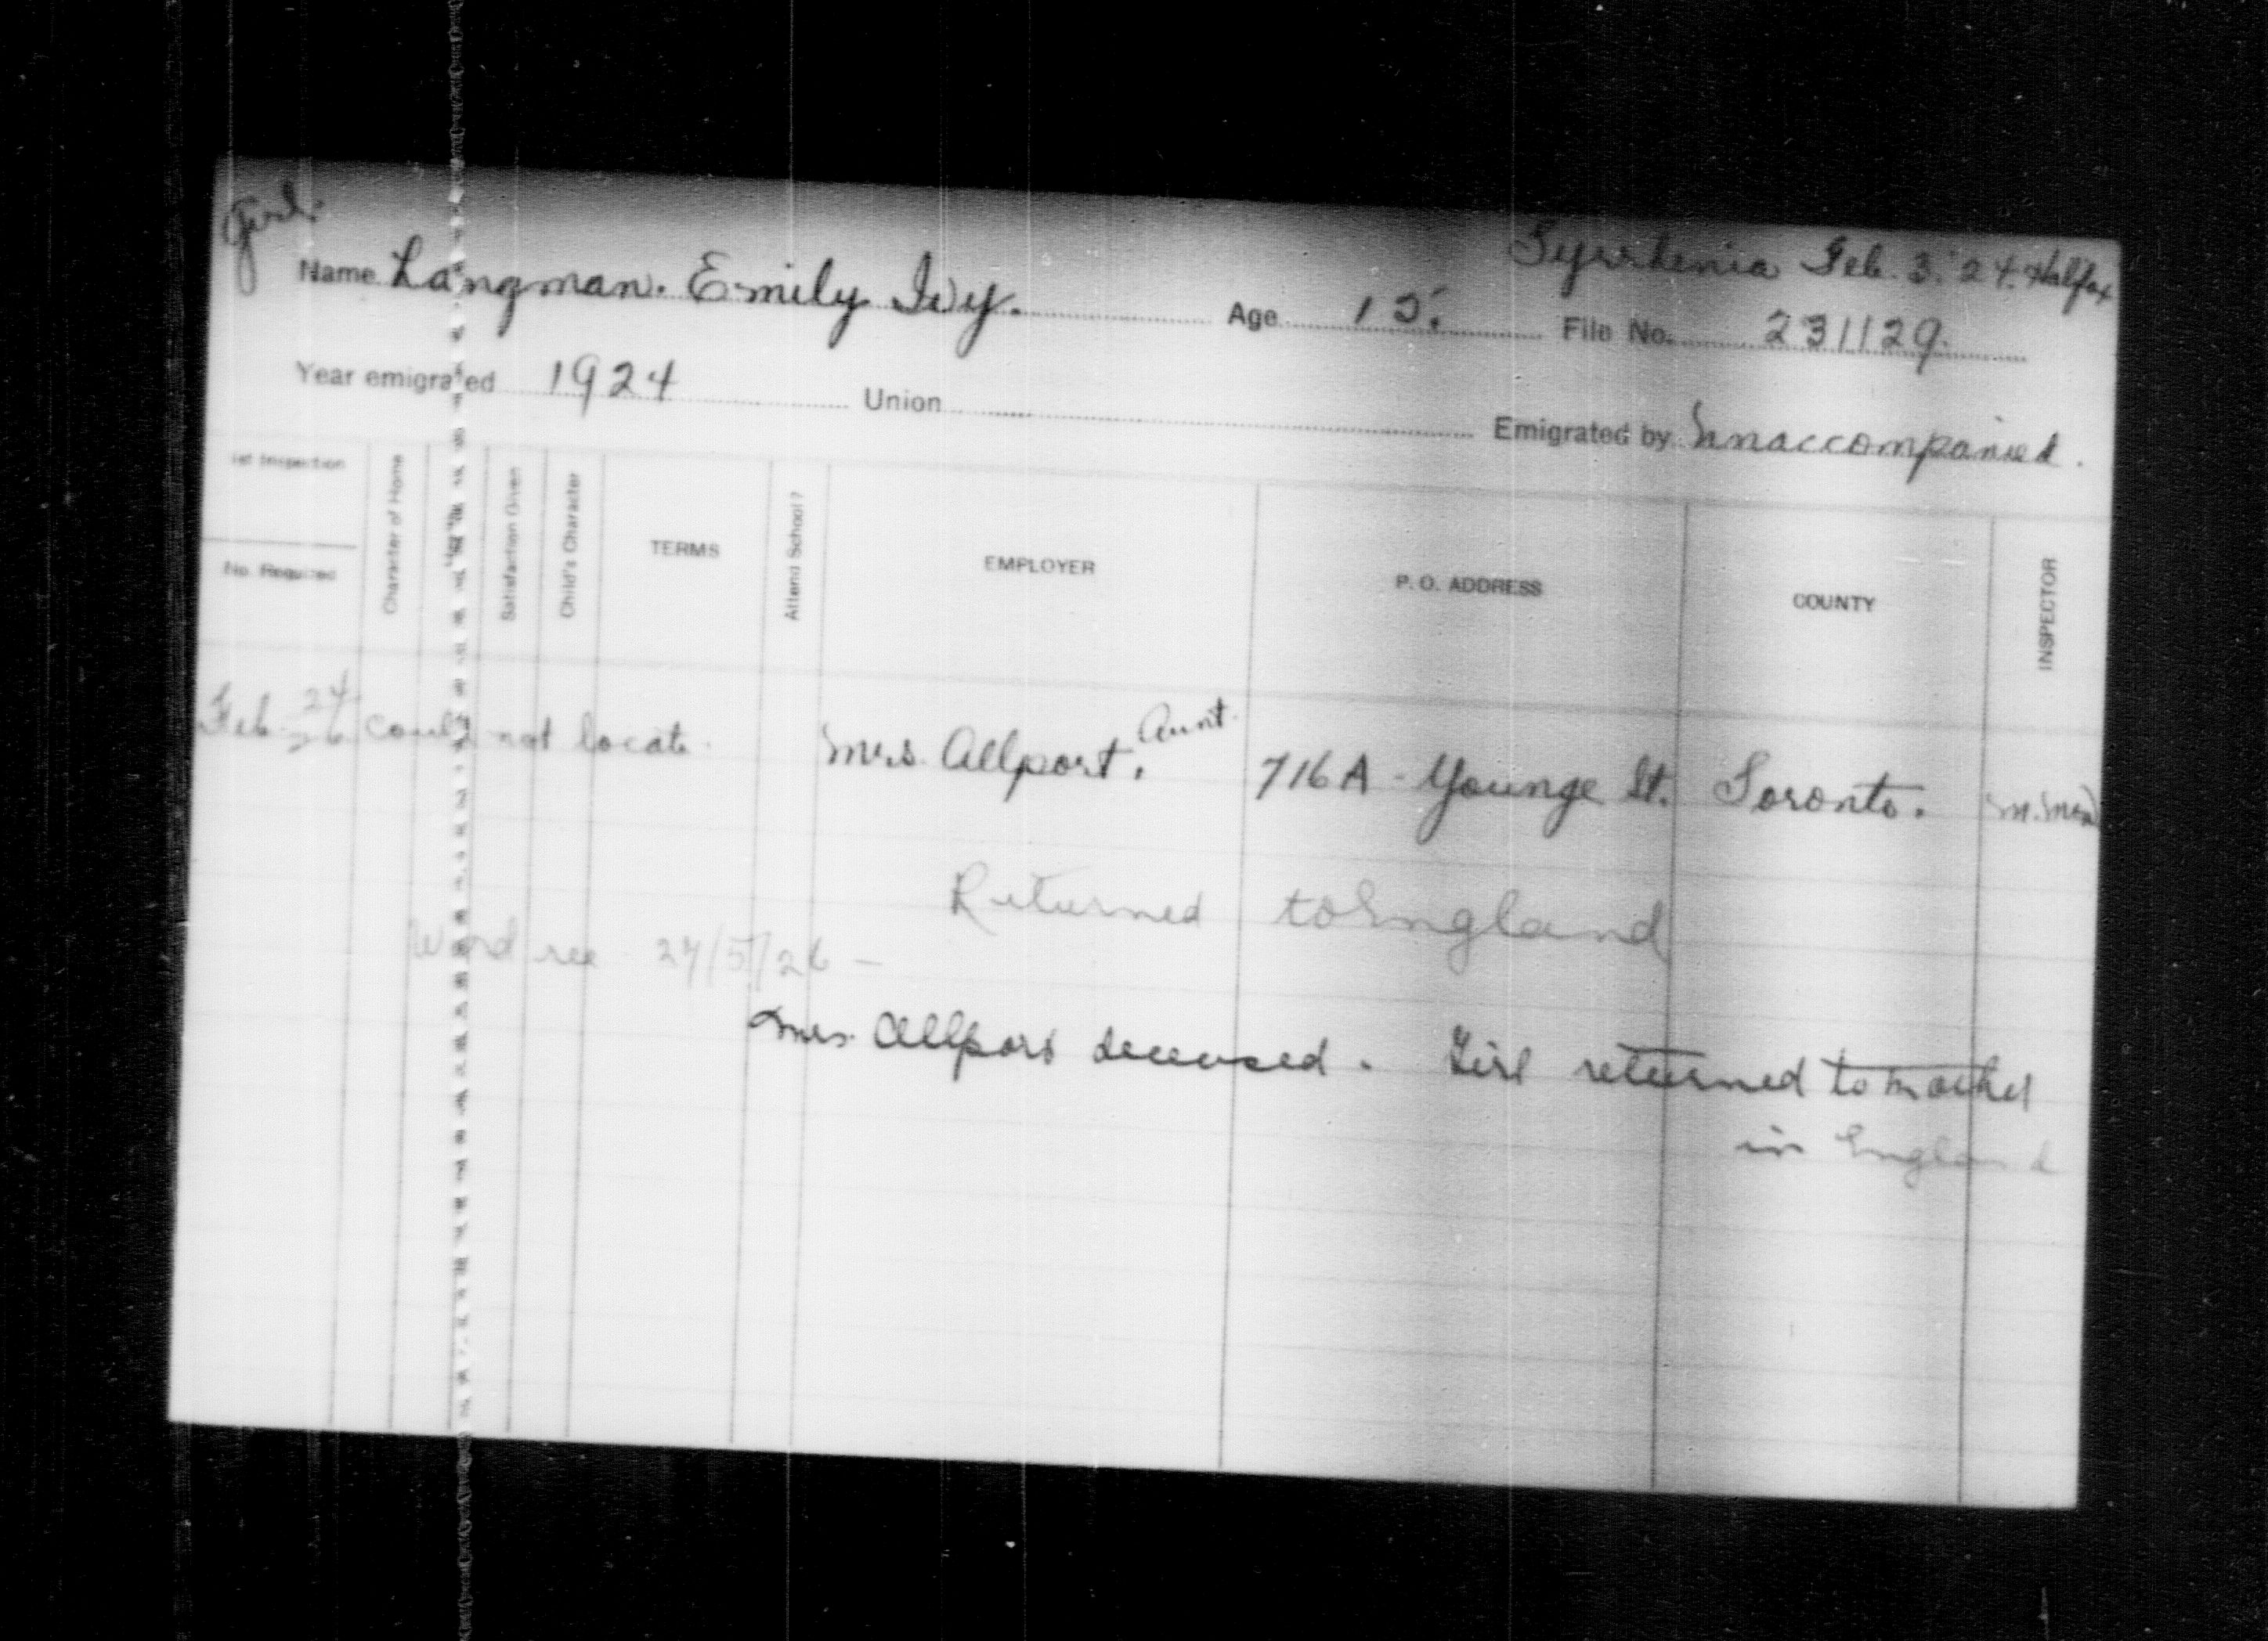 Girl.
Tyrrhenia Feb. 3. '24. Halifax
Name Langman. Emily Ivy. Age 15. File No. 231129.
Year emigrated 1924 Union Emigrated by Unaccompanied.
1st Inspection
No. Required
Character of Home
Satisfaction Given
Child's Character
TERMS
Attend School?
EMPLOYER
P. O. ADDRESS
COUNTY
INSPECTOR
Feb. 24/26 could not locate. Mrs. Allport, Aunt. 716A - Younge St. Toronto.
Returned to England
Word rec 27/5/26 -
Mrs. Allport deceased. Girl returned to mother
in England